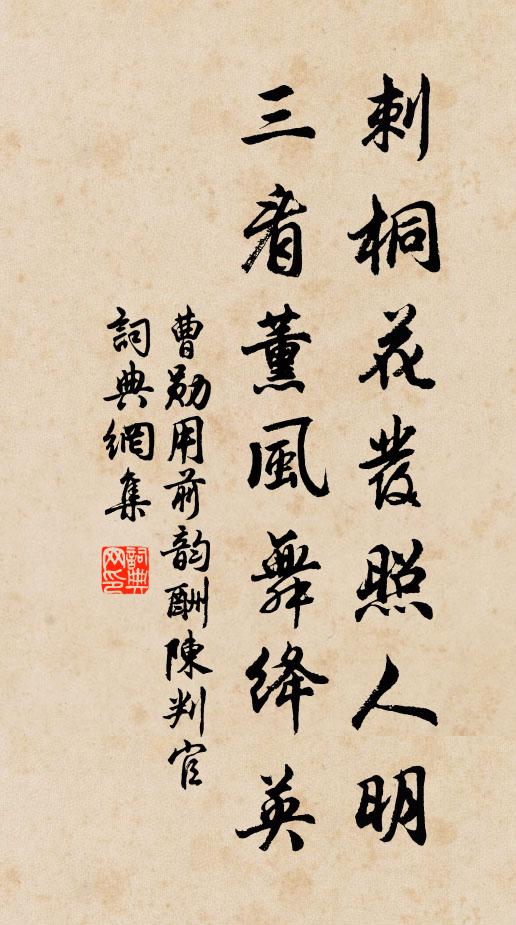 刺桐花發照人明
三看薰風舞絳英
曹勛用前韵酬陳判官
詞典網集
詞典网印